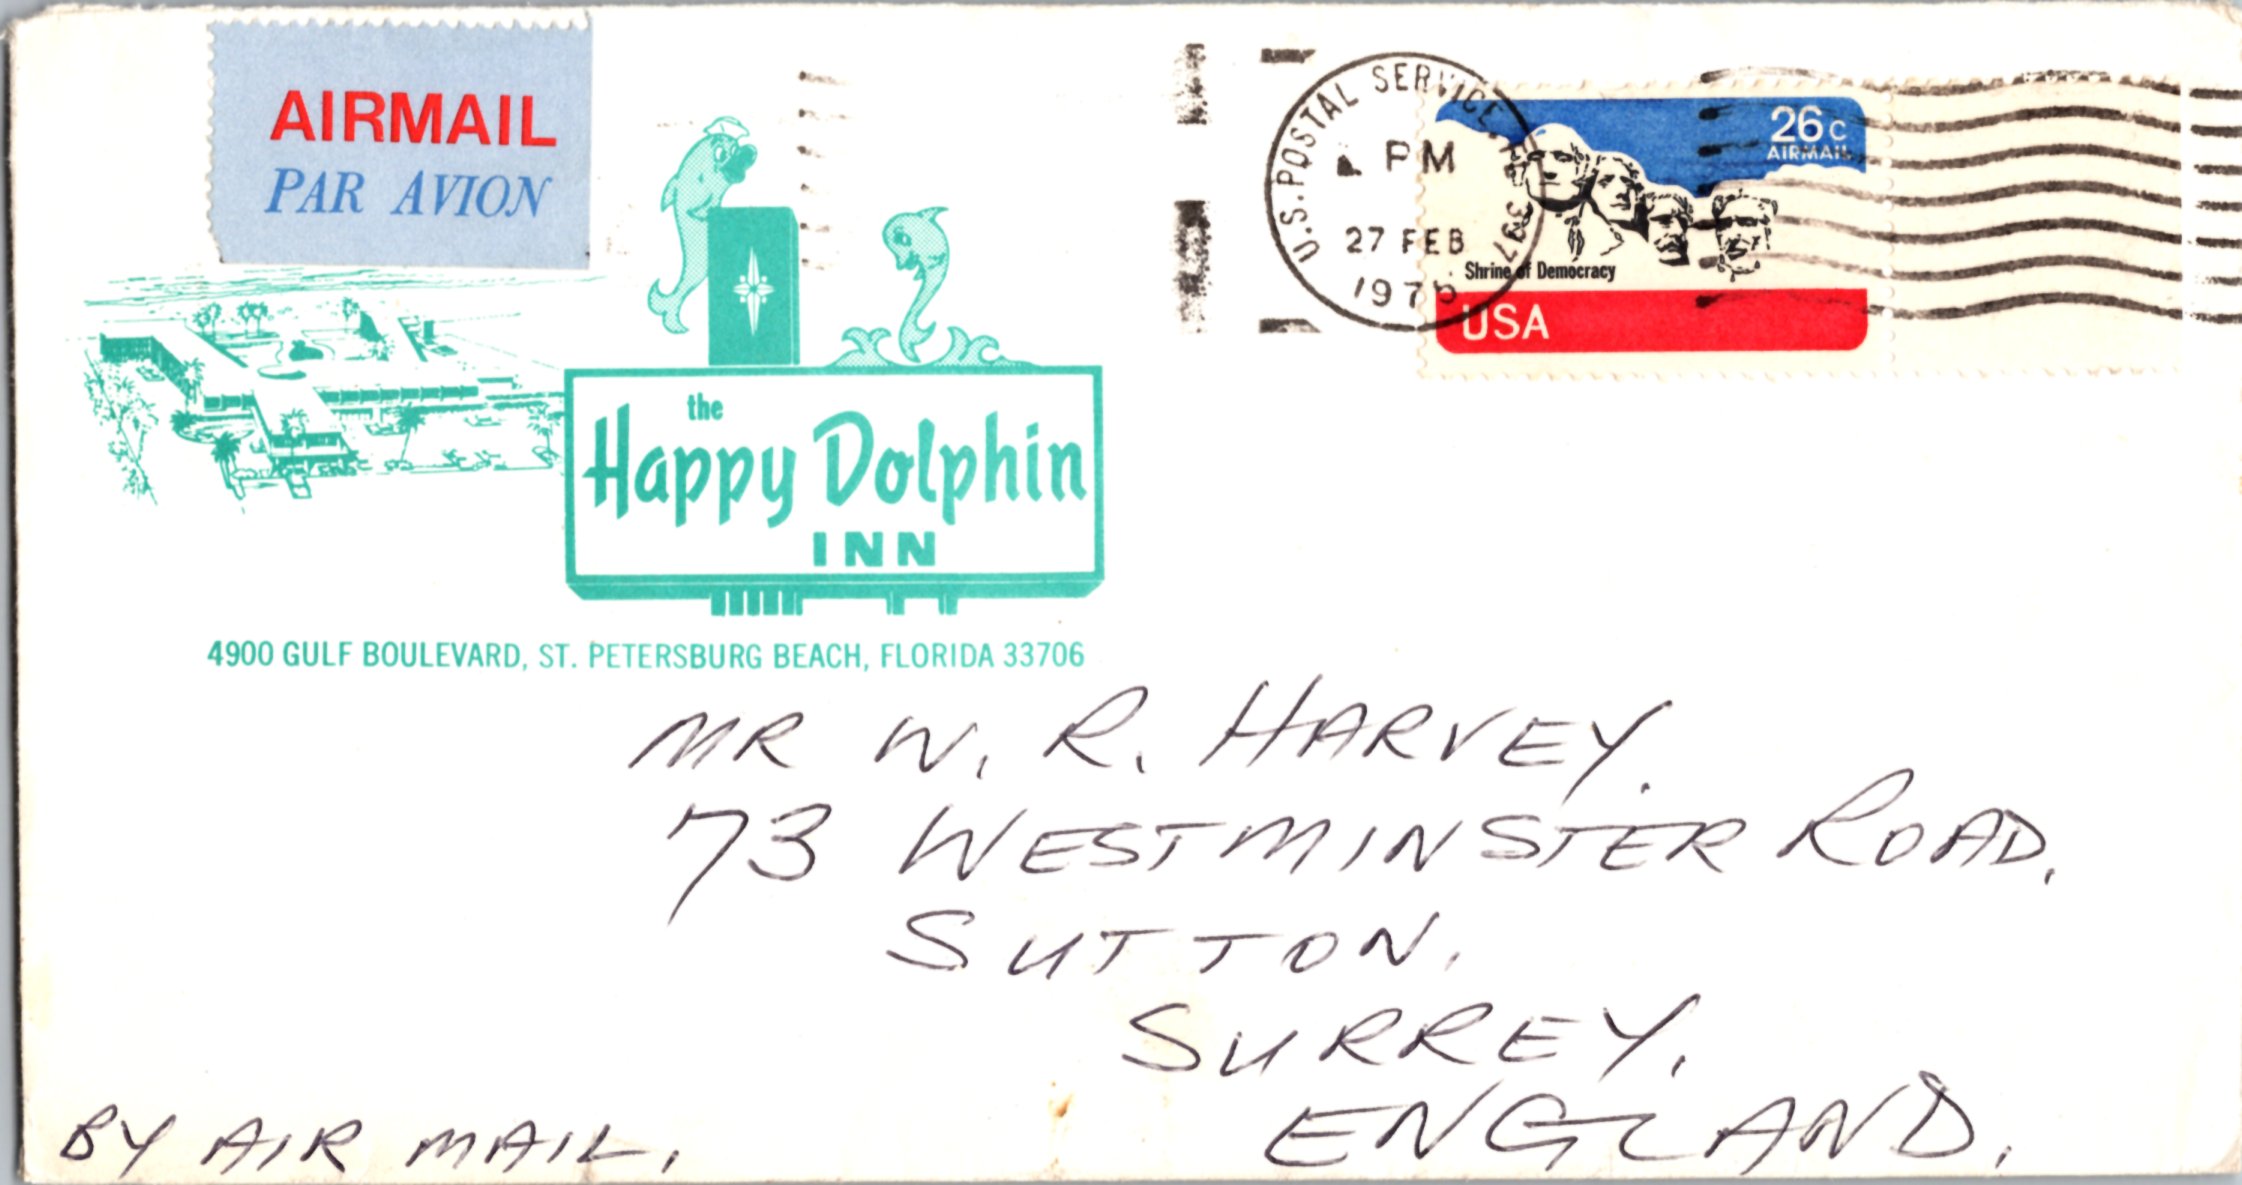 AIRMAIL
PAR AVION
the
Happy Dolphin
INN
4900 GULF BOULEVARD, ST. PETERSBURG BEACH, FLORIDA 33706
U.S. POSTAL SERVICE
PM
27 FEB
26c
AIRMAIL
Shrine of Democracy
USA
MR W. R. HARVEY.
73 WESTMINSTER ROAD,
SUTTON,
SURREY,
ENGLAND.
BY AIR MAIL.